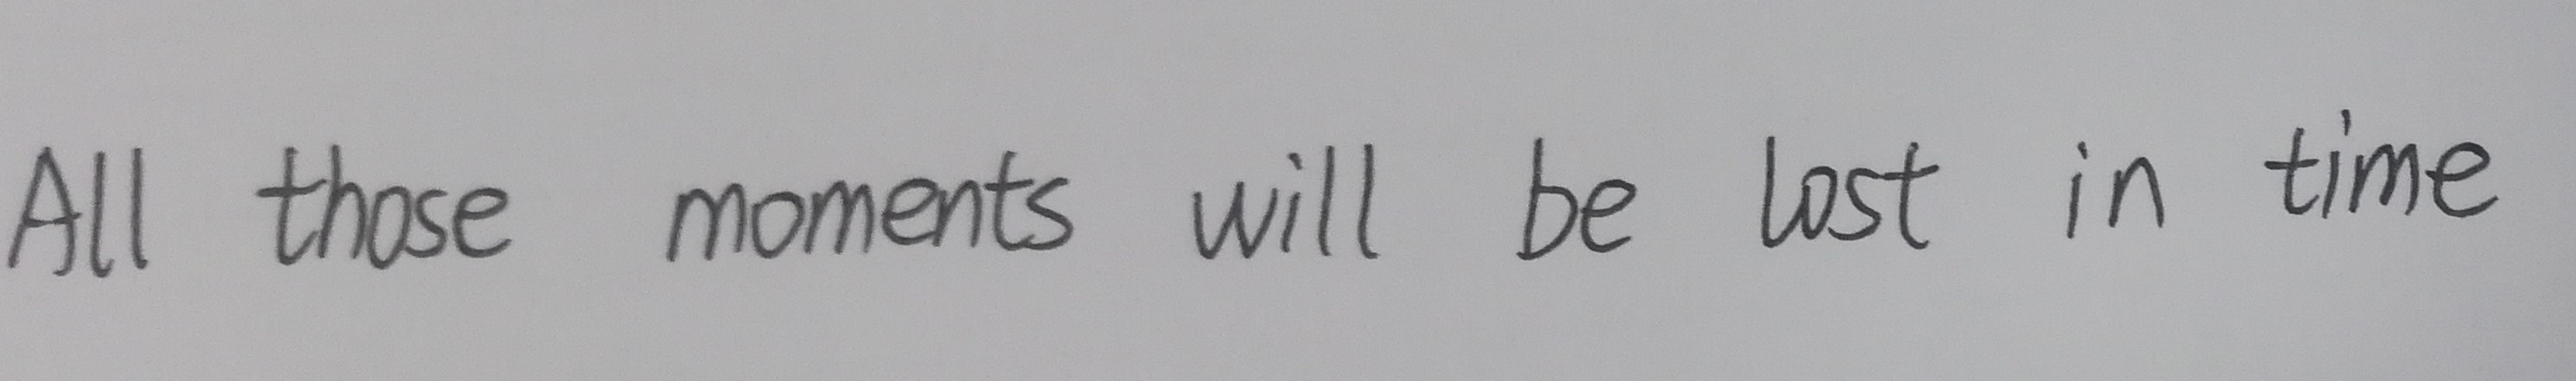 All those moments will be lost in time